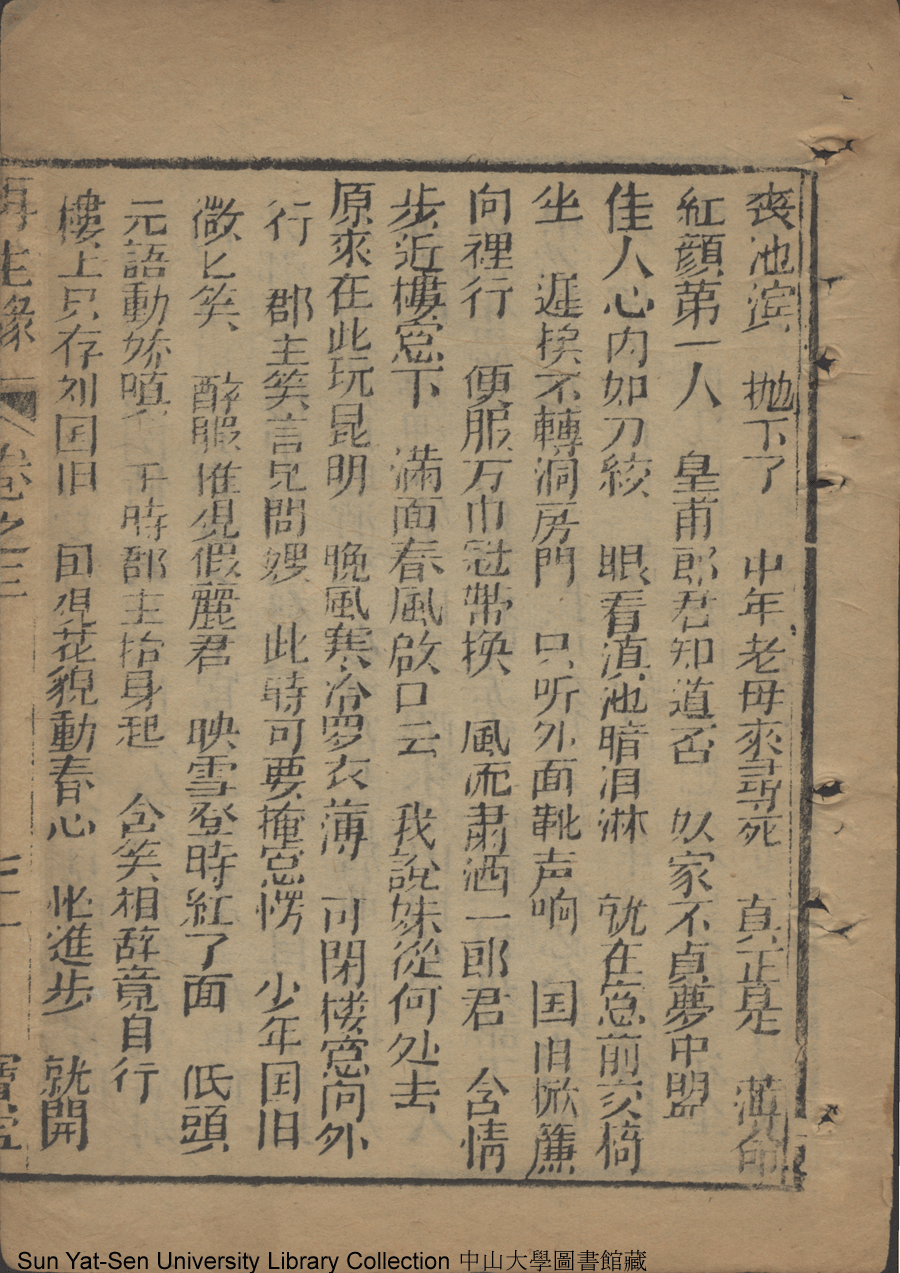 喪池濱 抛下了 中年老母來尋死 真正是 薄命
紅顔第一人 皇甫郎君知道否 奴家不貞夢中盟
佳人心内如刀絞 眼看滇池暗泪淋 就在窓前交椅
坐 遲挨不轉洞房門 只听外面靴声响 国旧掀簾
向裡行 便服方巾冠帶换 風流肅洒一郎君 含情
步近樓窓下 滿面春風啟口云 我說妹從何处去
原來在此玩昆明 晚風寒冷罗衣薄 可閉楼窓向外
行 郡主笑言兄問嫂 此時可要掩窓愣 少年国旧
微匕笑 醉眼惟覌假麗君 映雪登時紅了面 低頭
元語動嬌嗔 于時郡主抬身起 含笑相辞竟自行
樓上只存刘国旧 回覌花貌動春心 忙進步 就開
再生緣 卷之三 七一 寶寧
Sun Yat-Sen University Library Collection 中山大學圖書館藏